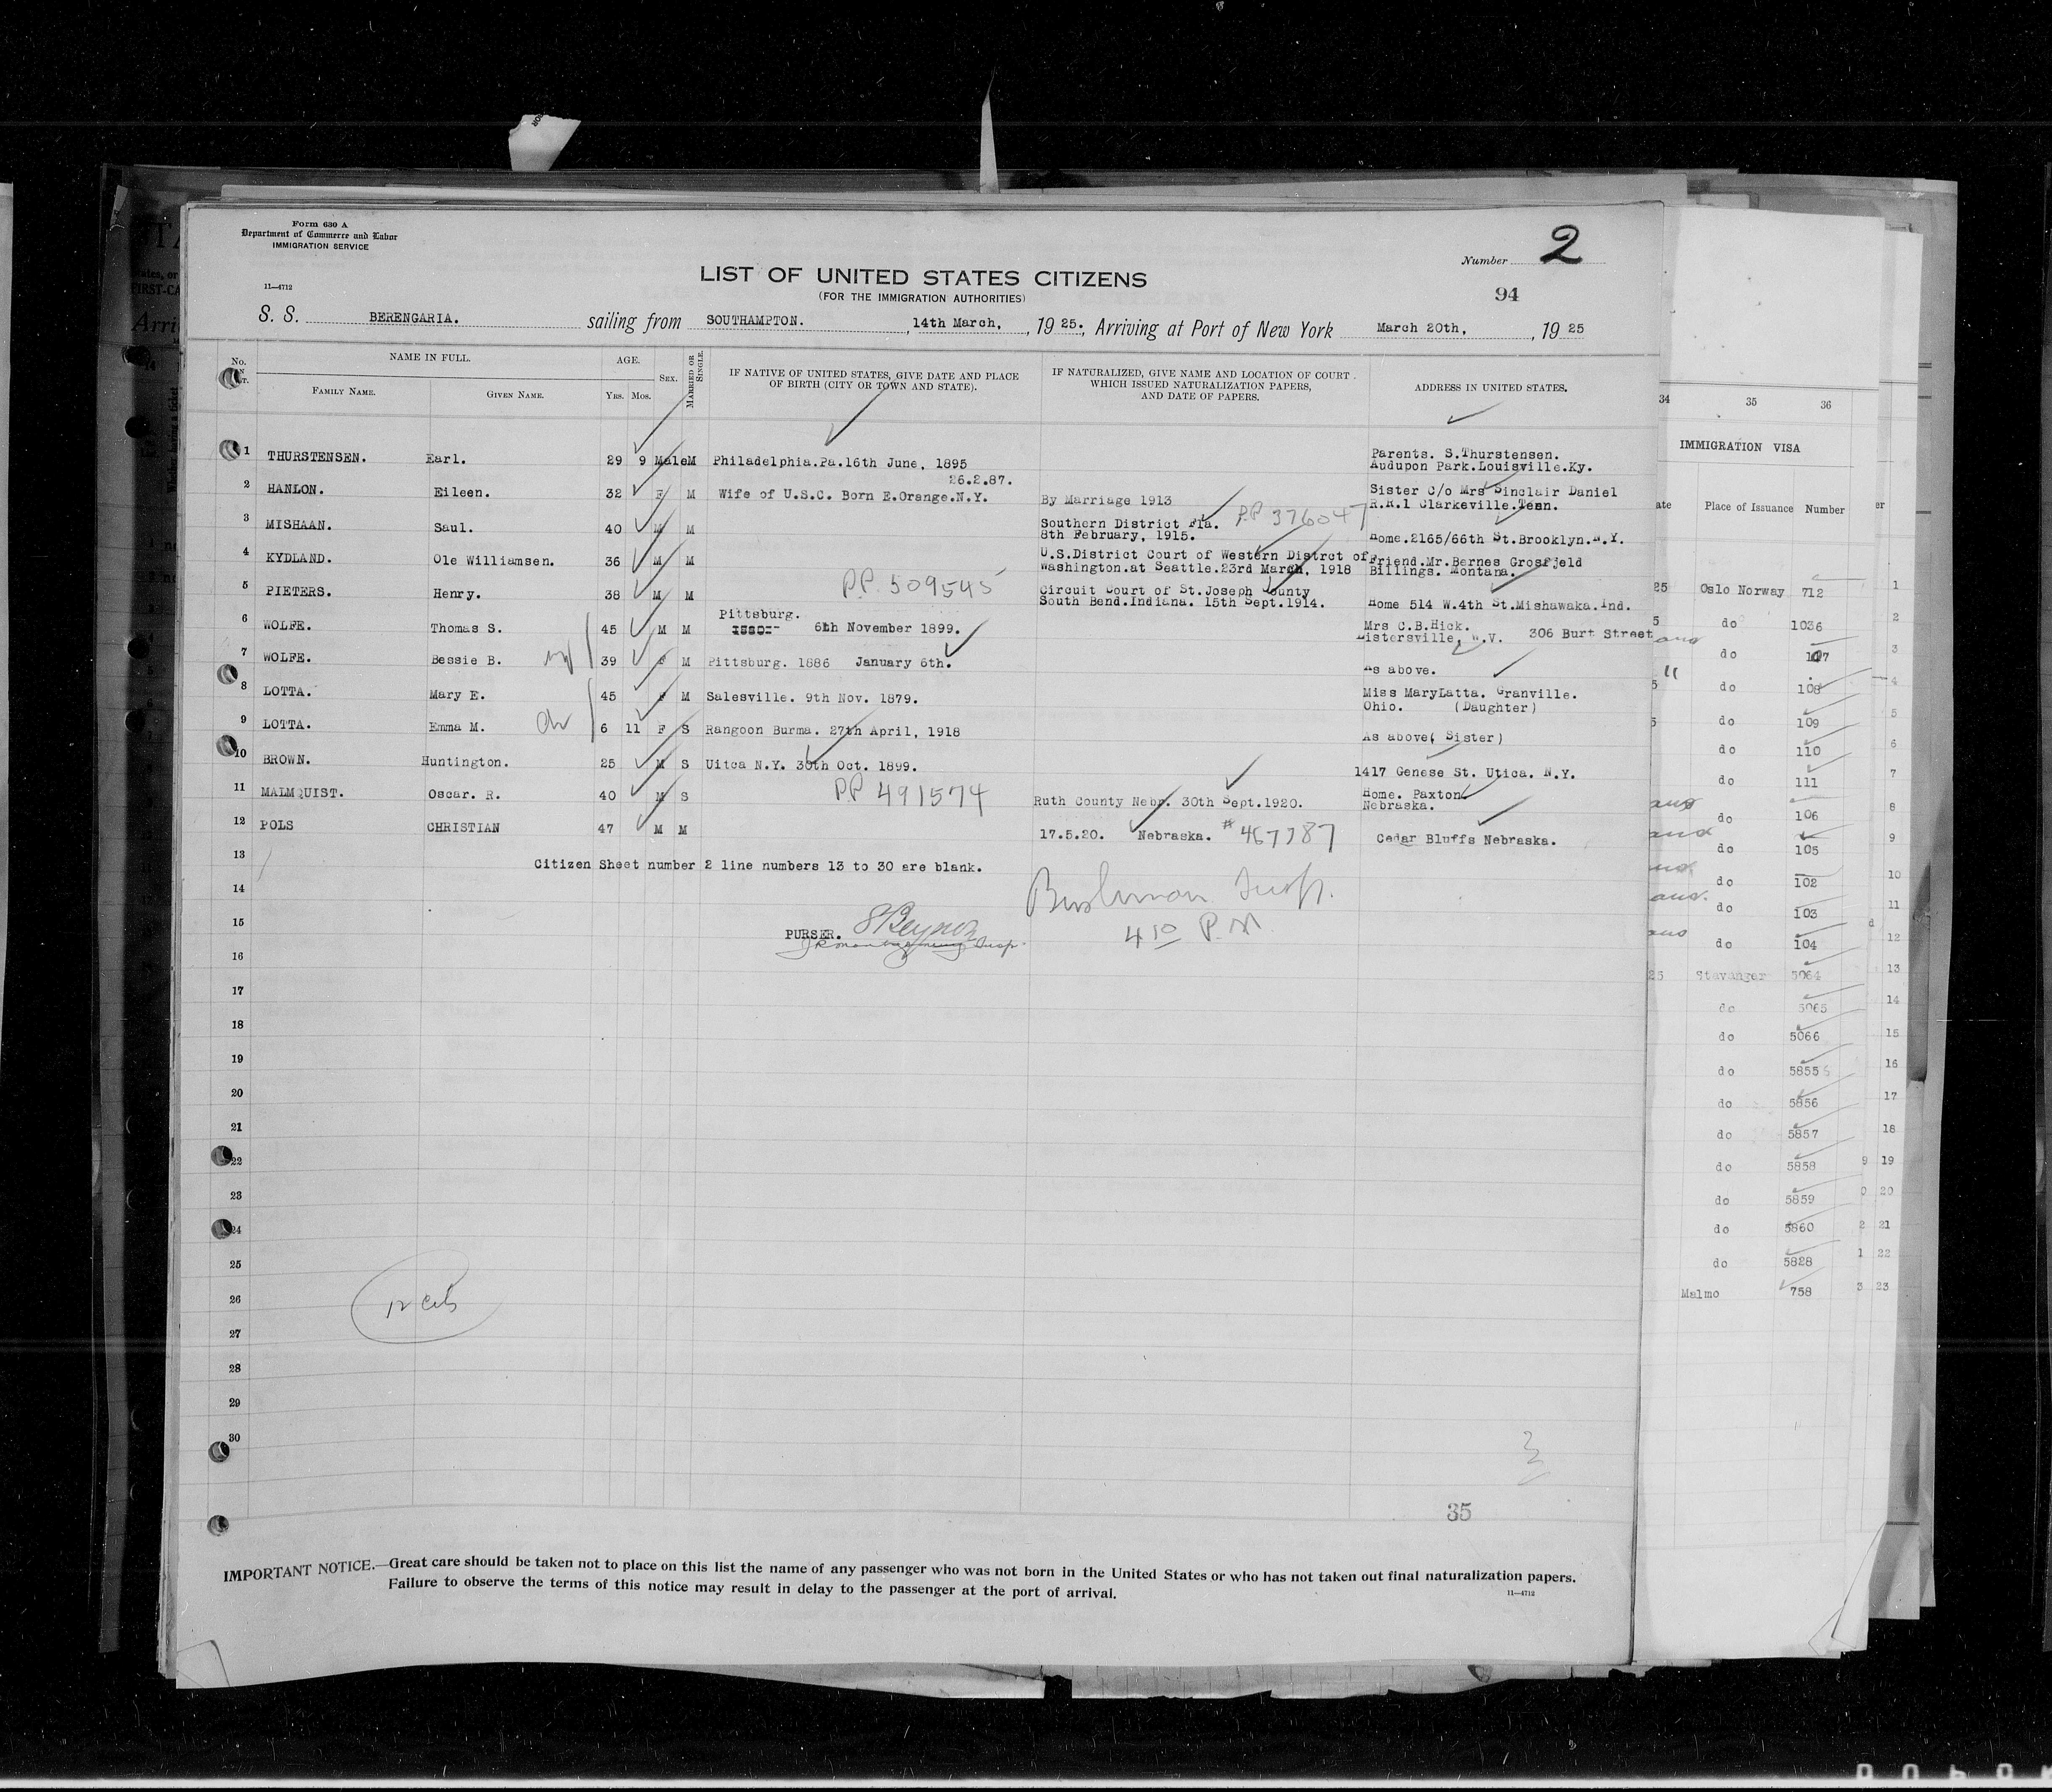 Form 630 A
Department of Commerce and Labor
IMMIGRATION SERVICE
11—4712
LIST OF UNITED STATES CITIZENS
(FOR THE IMMIGRATION AUTHORITIES)
Number 2
94
S. S. BERENGARIA. sailing from SOUTHAMPTON. , 14th March, , 19 25. , Arriving at Port of New York March 20th, , 19 25
No.
NAME IN FULL.
FAMILY NAME.
GIVEN NAME.
AGE.
YRS. MOS.
SEX.
MARRIED OR SINGLE.
IF NATIVE OF UNITED STATES, GIVE DATE AND PLACE
OF BIRTH (CITY OR TOWN AND STATE).
IF NATURALIZED, GIVE NAME AND LOCATION OF COURT
WHICH ISSUED NATURALIZATION PAPERS,
AND DATE OF PAPERS.
ADDRESS IN UNITED STATES.
1 THURSTENSEN. Earl. 29 9 Male M Philadelphia.Pa.16th June, 1895 Parents. S.Thurstensen.
Audupon Park.Louisville.Ky.
26.2.87.
2 HANLON. Eileen. 32 F M Wife of U.S.C. Born E.Orange.N.Y. By Marriage 1913 Sister C/o Mrs Sinclair Daniel
R.R.1 Clarkeville.Tenn.
3 MISHAAN. Saul. 40 M M Southern District Fla. PP 376047
8th February, 1915. Home.2165/66th St.Brooklyn.N.Y.
4 KYDLAND. Ole Williamsen. 36 M M U.S.District Court of Western Distrct of Friend.Mr.Bernes Grosfjeld
Washington.at Seattle.23rd March, 1918 Billings. Montana.
5 PIETERS. Henry. 38 M M PP. 509545 Circuit Court of St.Joseph County
South Bend.Indiana. 15th Sept.1914. Home 514 W.4th St.Mishawaka.Ind.
Pittsburg.
6 WOLFE. Thomas S. 45 M M 6th November 1899. Mrs C.B.Hick.
Sistersville, W.V. 306 Burt Street
7 WOLFE. Bessie B. wf 39 F M Pittsburg. 1886 January 6th. As above.
8 LOTTA. Mary E. 45 F M Salesville. 9th Nov. 1879. Miss MaryLatta. Granville.
Ohio. (Daughter)
9 LOTTA. Emma M. ch 6 11 F S Rangoon Burma. 27th April, 1918 As above( Sister)
10 BROWN. Huntington. 25 M S Uitca N.Y. 30th Oct. 1899. 1417 Genese St. Utica. N.Y.
11 MALMQUIST. Oscar. R. 40 M S PP 491574 Ruth County Nebr. 30th Sept.1920. Home. Paxton.
Nebraska.
12 POLS CHRISTIAN 47 M M 17.5.20. Nebraska. # 467787 Cedar Bluffs Nebraska.
13 Citizen Sheet number 2 line numbers 13 to 30 are blank.
14
15 PURSER. Insp.
4 10 P.M
16
17
18
19
20
21
22
23
24
25
26 12 cits
27
28
29
30
3
35
IMPORTANT NOTICE.—Great care should be taken not to place on this list the name of any passenger who was not born in the United States or who has not taken out final naturalization papers.
Failure to observe the terms of this notice may result in delay to the passenger at the port of arrival.
11—4712
34 35 36
IMMIGRATION VISA
Place of Issuance Number
25 Oslo Norway 712 1
5 do 1036 2
do 107 3
5 do 108 4
5 do 109 5
do 110 6
do 111 7
do 106 8
do 105 9
do 102 10
do 103 11
do 104 12
25 Stavanger 5064 13
do 5065 14
do 5066 15
do 5855 16
do 5856 17
do 5857 18
do 5858 9 19
do 5859 0 20
do 5860 2 21
do 5828 1 22
Malmo 758 3 23